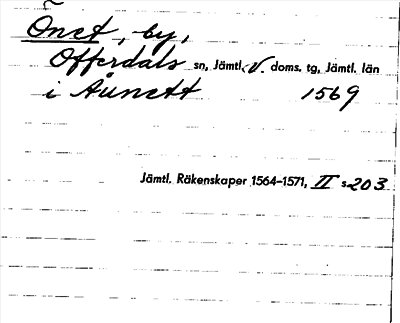 Önet, by,
Offerdals sn, Jämtl. V. doms. tg, Jämtl. län
i Aúnett 1569
Jämtl. Räkenskaper 1564–1571, II s. 203